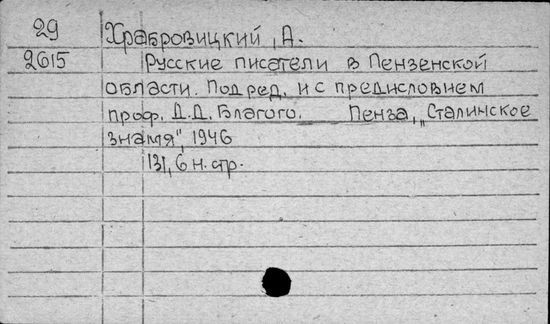 29 Храбровицкий, А.
2615 Русские писатели в Пензенской
области. Под ред. и с предисловием
проф. Д.Д. Благого. Пенза, „Сталинское
знамя", 1946
131, 6 н. стр.